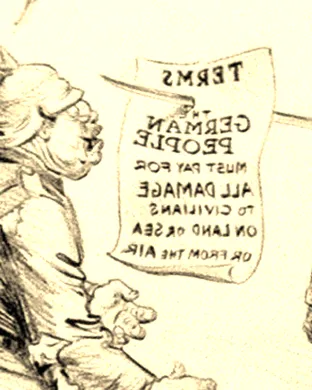 TERMS
THE
GERMAN
PEOPLE
MUST PAY FOR
ALL DAMAGE
TO CIVILIANS
ON LAND OR SEA
OR FROM THE AIR